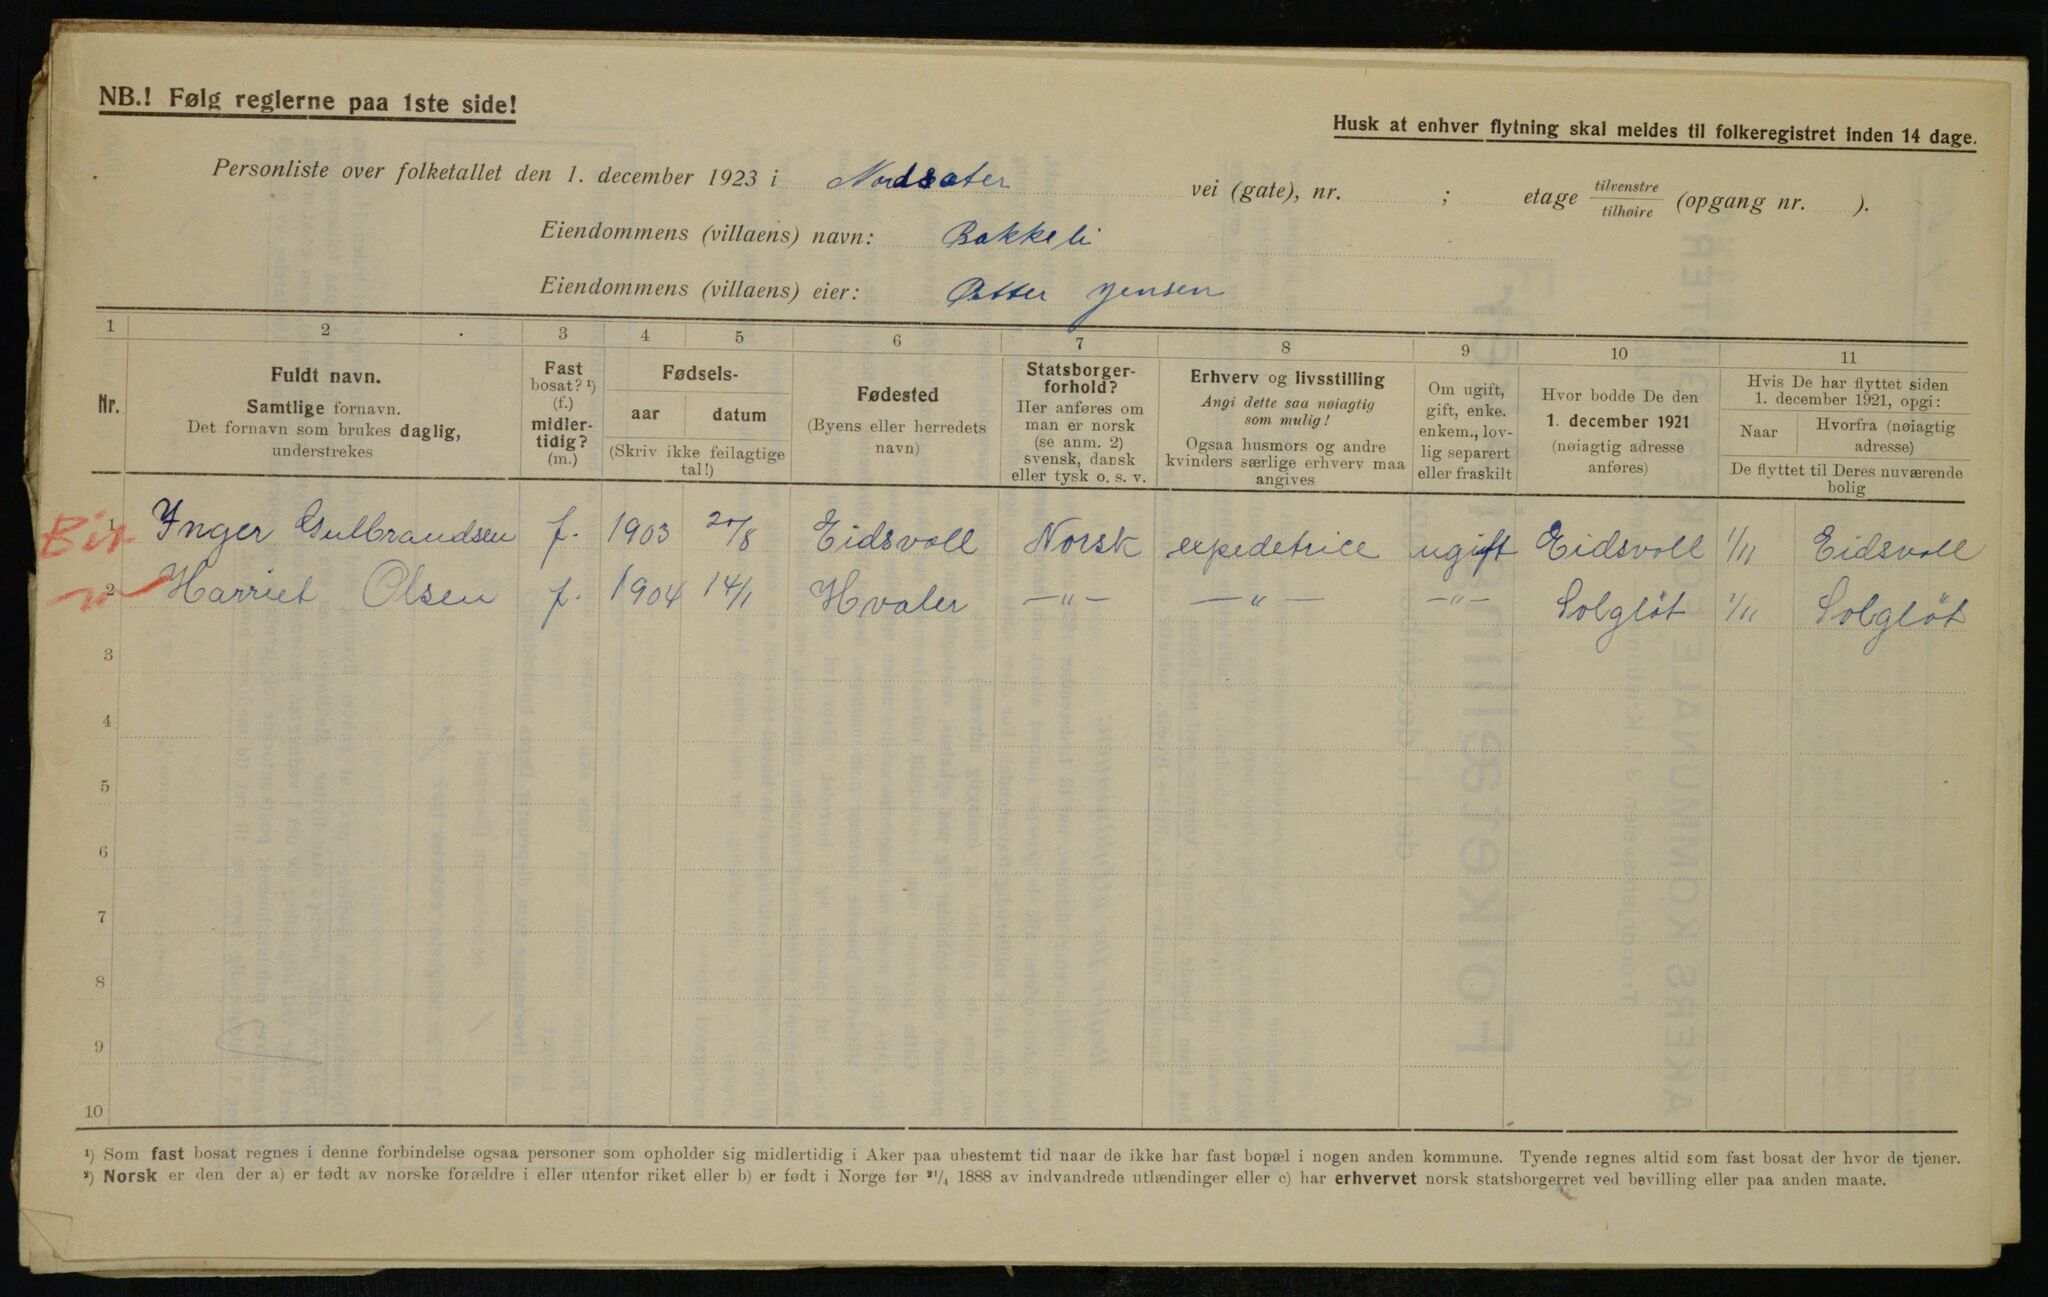 NB.! Følg reglerne paa 1ste side!
Husk at enhver flytning skal meldes til folkeregistret inden 14 dage.
Personliste over folketallet den 1. december 1923 i Nordsæter vei (gate), nr. ; etage tilvenstre/tilhøire (opgang nr. ).
Eiendommens (villaens) navn: Bakkeli
Eiendommens (villaens) eier: Petter Jensen
1 2 3 4 5 6 7 8 9 10 11
Nr.
Fuldt navn.
Samtlige fornavn.
Det fornavn som brukes daglig,
understrekes
Fast
bosat? ¹)
(f.)
midler-
tidig?
(m.)
Fødsels-
aar datum
(Skriv ikke feilagtige
tal!)
Fødested
(Byens eller herredets
navn)
Statsborger-
forhold?
Her anføres om
man er norsk
(se anm. 2)
svensk, dansk
eller tysk o. s. v.
Erhverv og livsstilling
Angi dette saa nøiagtig
som mulig!
Ogsaa husmors og andre
kvinders særlige erhverv maa
angives
Om ugift,
gift, enke.
enkem., lov-
lig separert
eller fraskilt
Hvor bodde De den
1. december 1921
(nøiagtig adresse
anføres)
Hvis De har flyttet siden
1. december 1921, opgi:
Naar
Hvorfra (nøiagtig
adresse)
De flyttet til Deres nuværende
bolig
1 Inger Gulbrandsen f. 1903 20/8 Eidsvoll Norsk expedetrice ugift Eidsvoll 1/11 Eidsvoll
2 Harriet Olsen f. 1904 14/1 Hvaler —"— —"— —"— Solgløt 1/11 Solgløt
3
4
5
6
7
8
9
10
¹) Som fast bosat regnes i denne forbindelse ogsaa personer som opholder sig midlertidig i Aker paa ubestemt tid naar de ikke har fast bopæl i nogen anden kommune. Tyende regnes altid som fast bosat der hvor de tjener.
²) Norsk er den der a) er født av norske forældre i eller utenfor riket eller b) er født i Norge før ²¹/₄ 1888 av indvandrede utlændinger eller c) har erhvervet norsk statsborgerret ved bevilling eller paa anden maate.